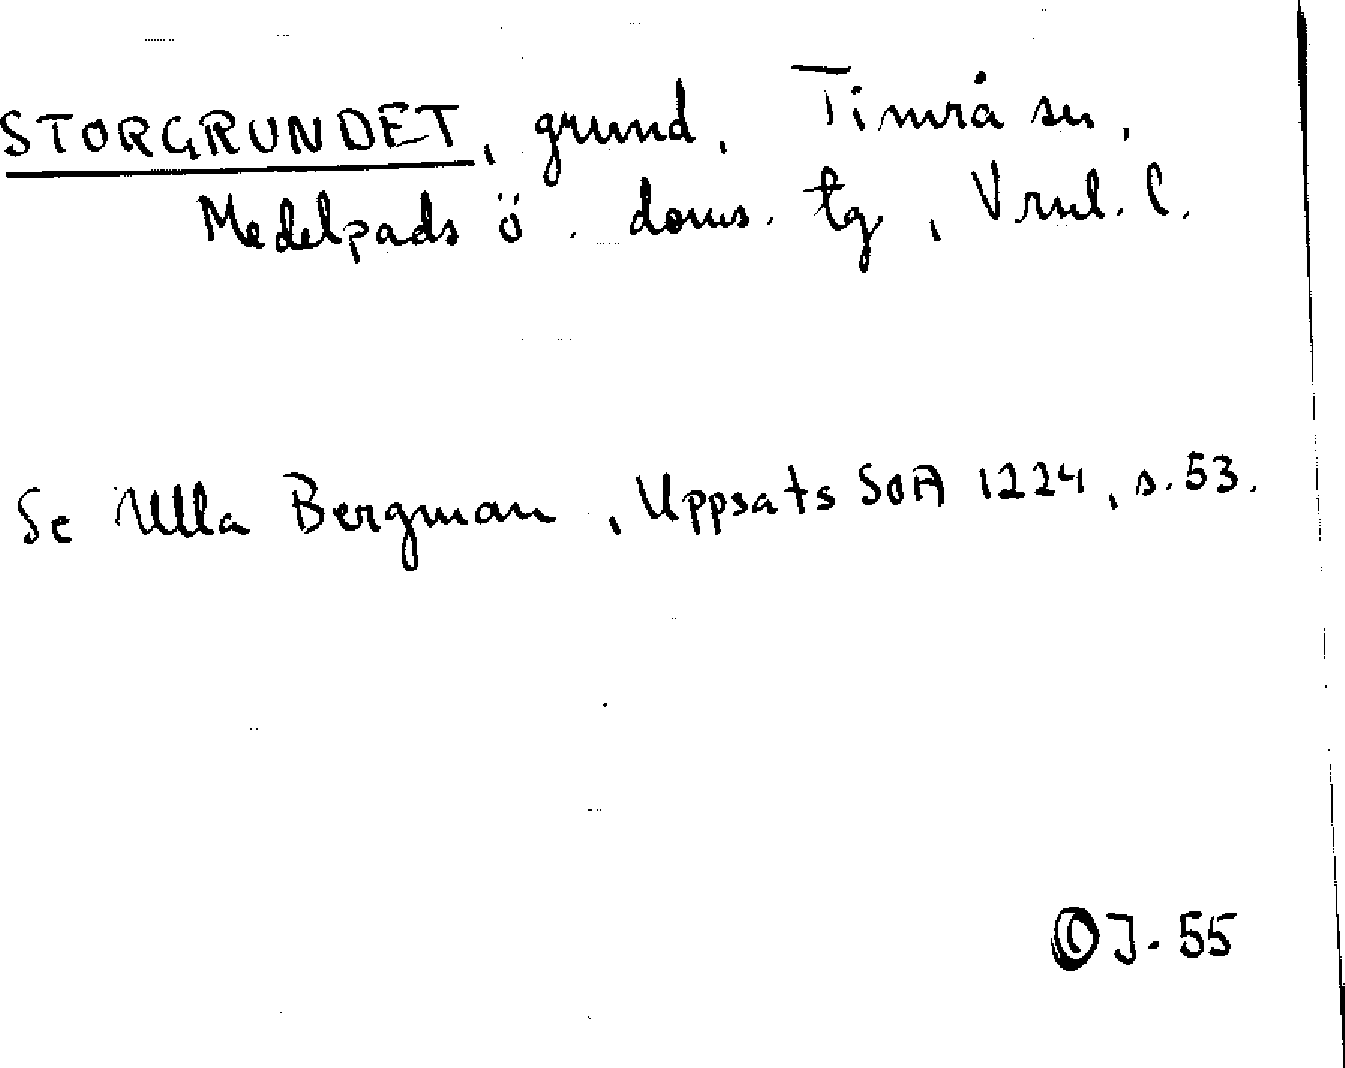 STORGRUNDET, grund, Timrå sn,
Medelpads ö. doms. tg, Vrnl. l.
Se Ulla Bergman, Uppsats SOA 1224, s. 53.
OJ. 55